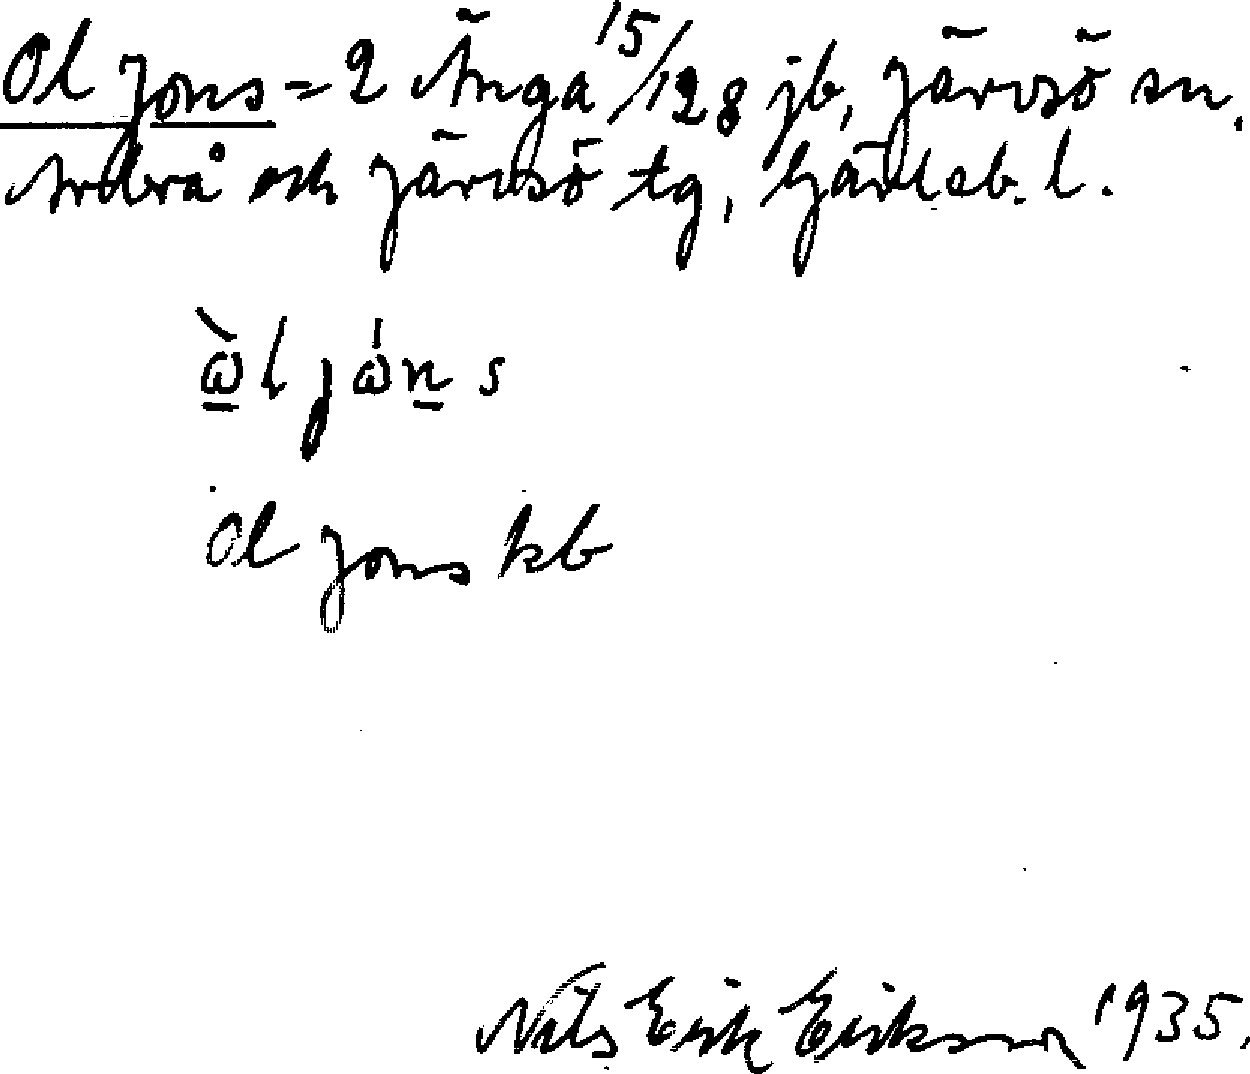 Ol Jons = 2 Änga 15/128 jb, Järvsö sn.
Arbrå och Järvsö tg, Gävleb. l.
ὼl jώn s
Ol Jons kb
Nils Erik Erikson 1935.